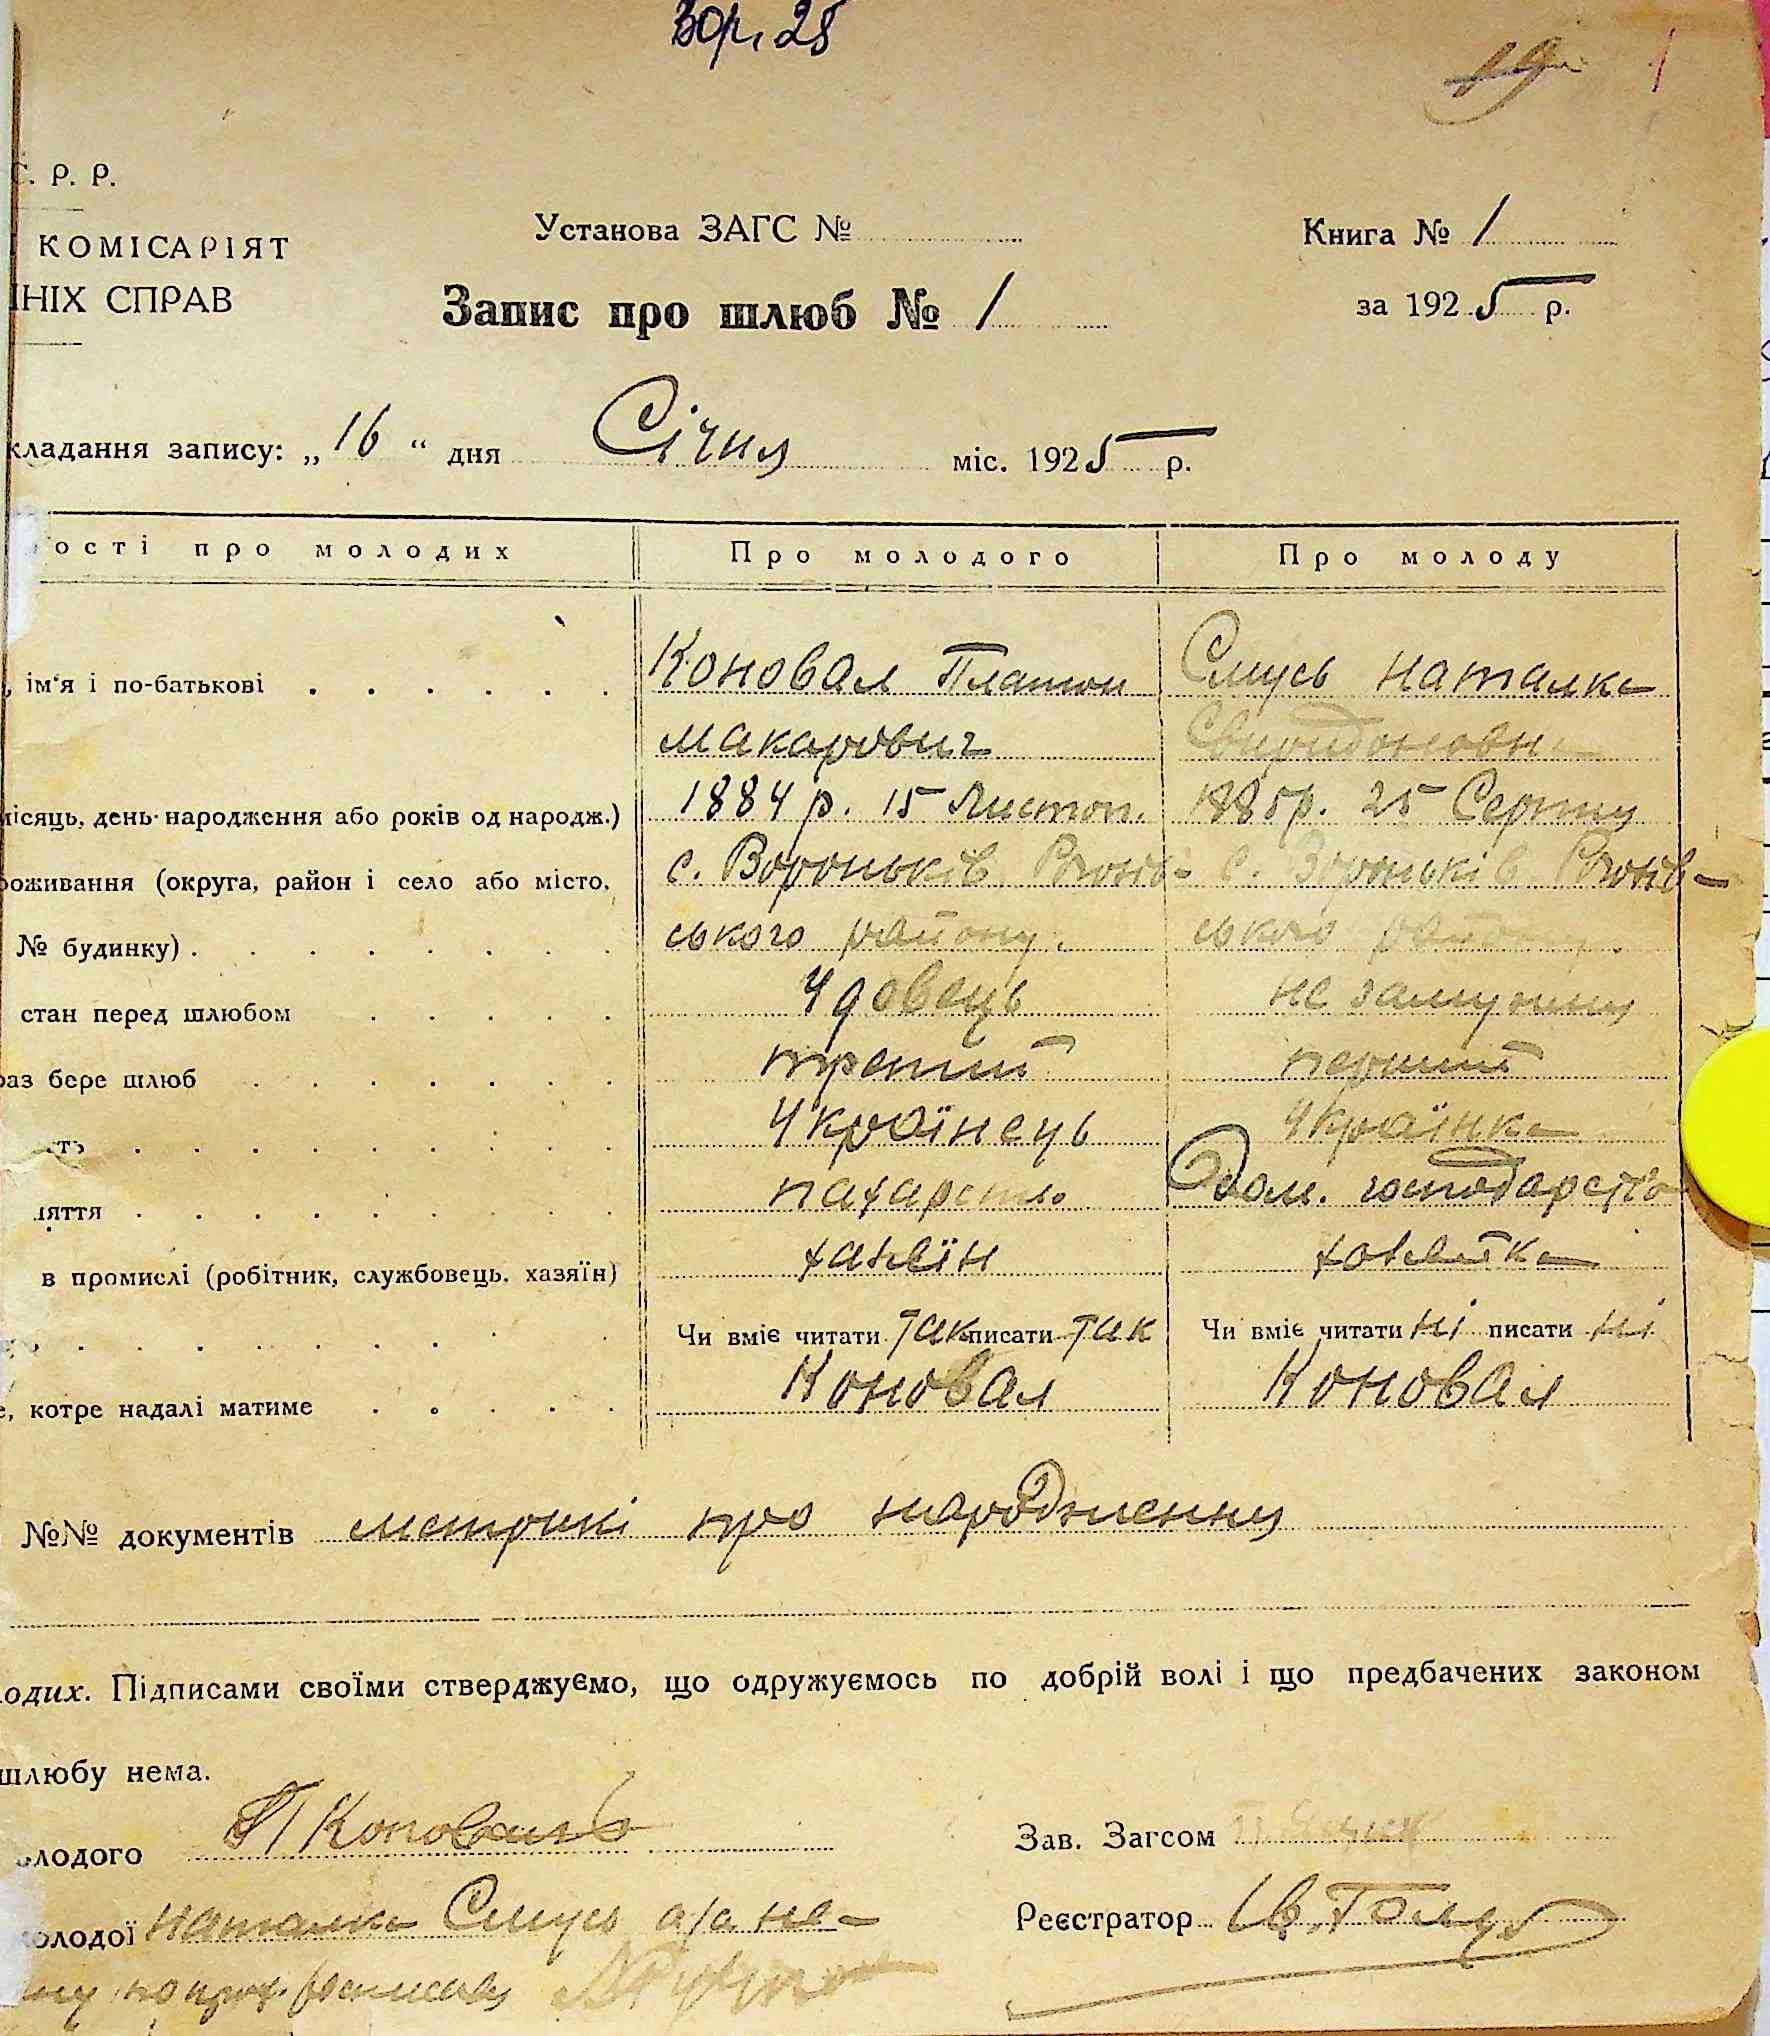 Вор. 25
19
1
С. Р. Р.
КОМІСАРІЯТ
ІНІХ СПРАВ
Установа ЗАГС №
Книга № 1
Запис про шлюб № 1
за 1925 р.
кладання запису: „16“ дня Січня міс. 1925 р.
ості про молодих Про молодого Про молоду
, ім'я і по-батькові Коновал Платон Смусь Наталка
Макарович Свиридоновна
місяць, день народження або років од народж.) 1884 р. 15 Листоп. 1885 р. 25 Серпня
роживання (округа, район і село або місто, с. Вороньків Рогозів- с. Вороньків Рогозів-
№ будинку) ського району. ського району.
стан перед шлюбом Удовець не замужня
раз бере шлюб третий перший
ть Українець Українка
ляття пахарство Дом. господарство
в промислі (робітник, службовець, хазяїн) хазяїн хозяйка
Чи вміє читати так писати так Чи вміє читати ні писати ні
е, котре надалі матиме Коновал Коновал
№№ документів метрикі про народження
лодих. Підписами своїми стверджуємо, що одружуємось по добрій волі і що предбачених законом
шлюбу нема.
олодого П Коновалъ
Зав. Загсом
олодої Наталка Смусь а за не-
Реєстратор Ів. Голуб